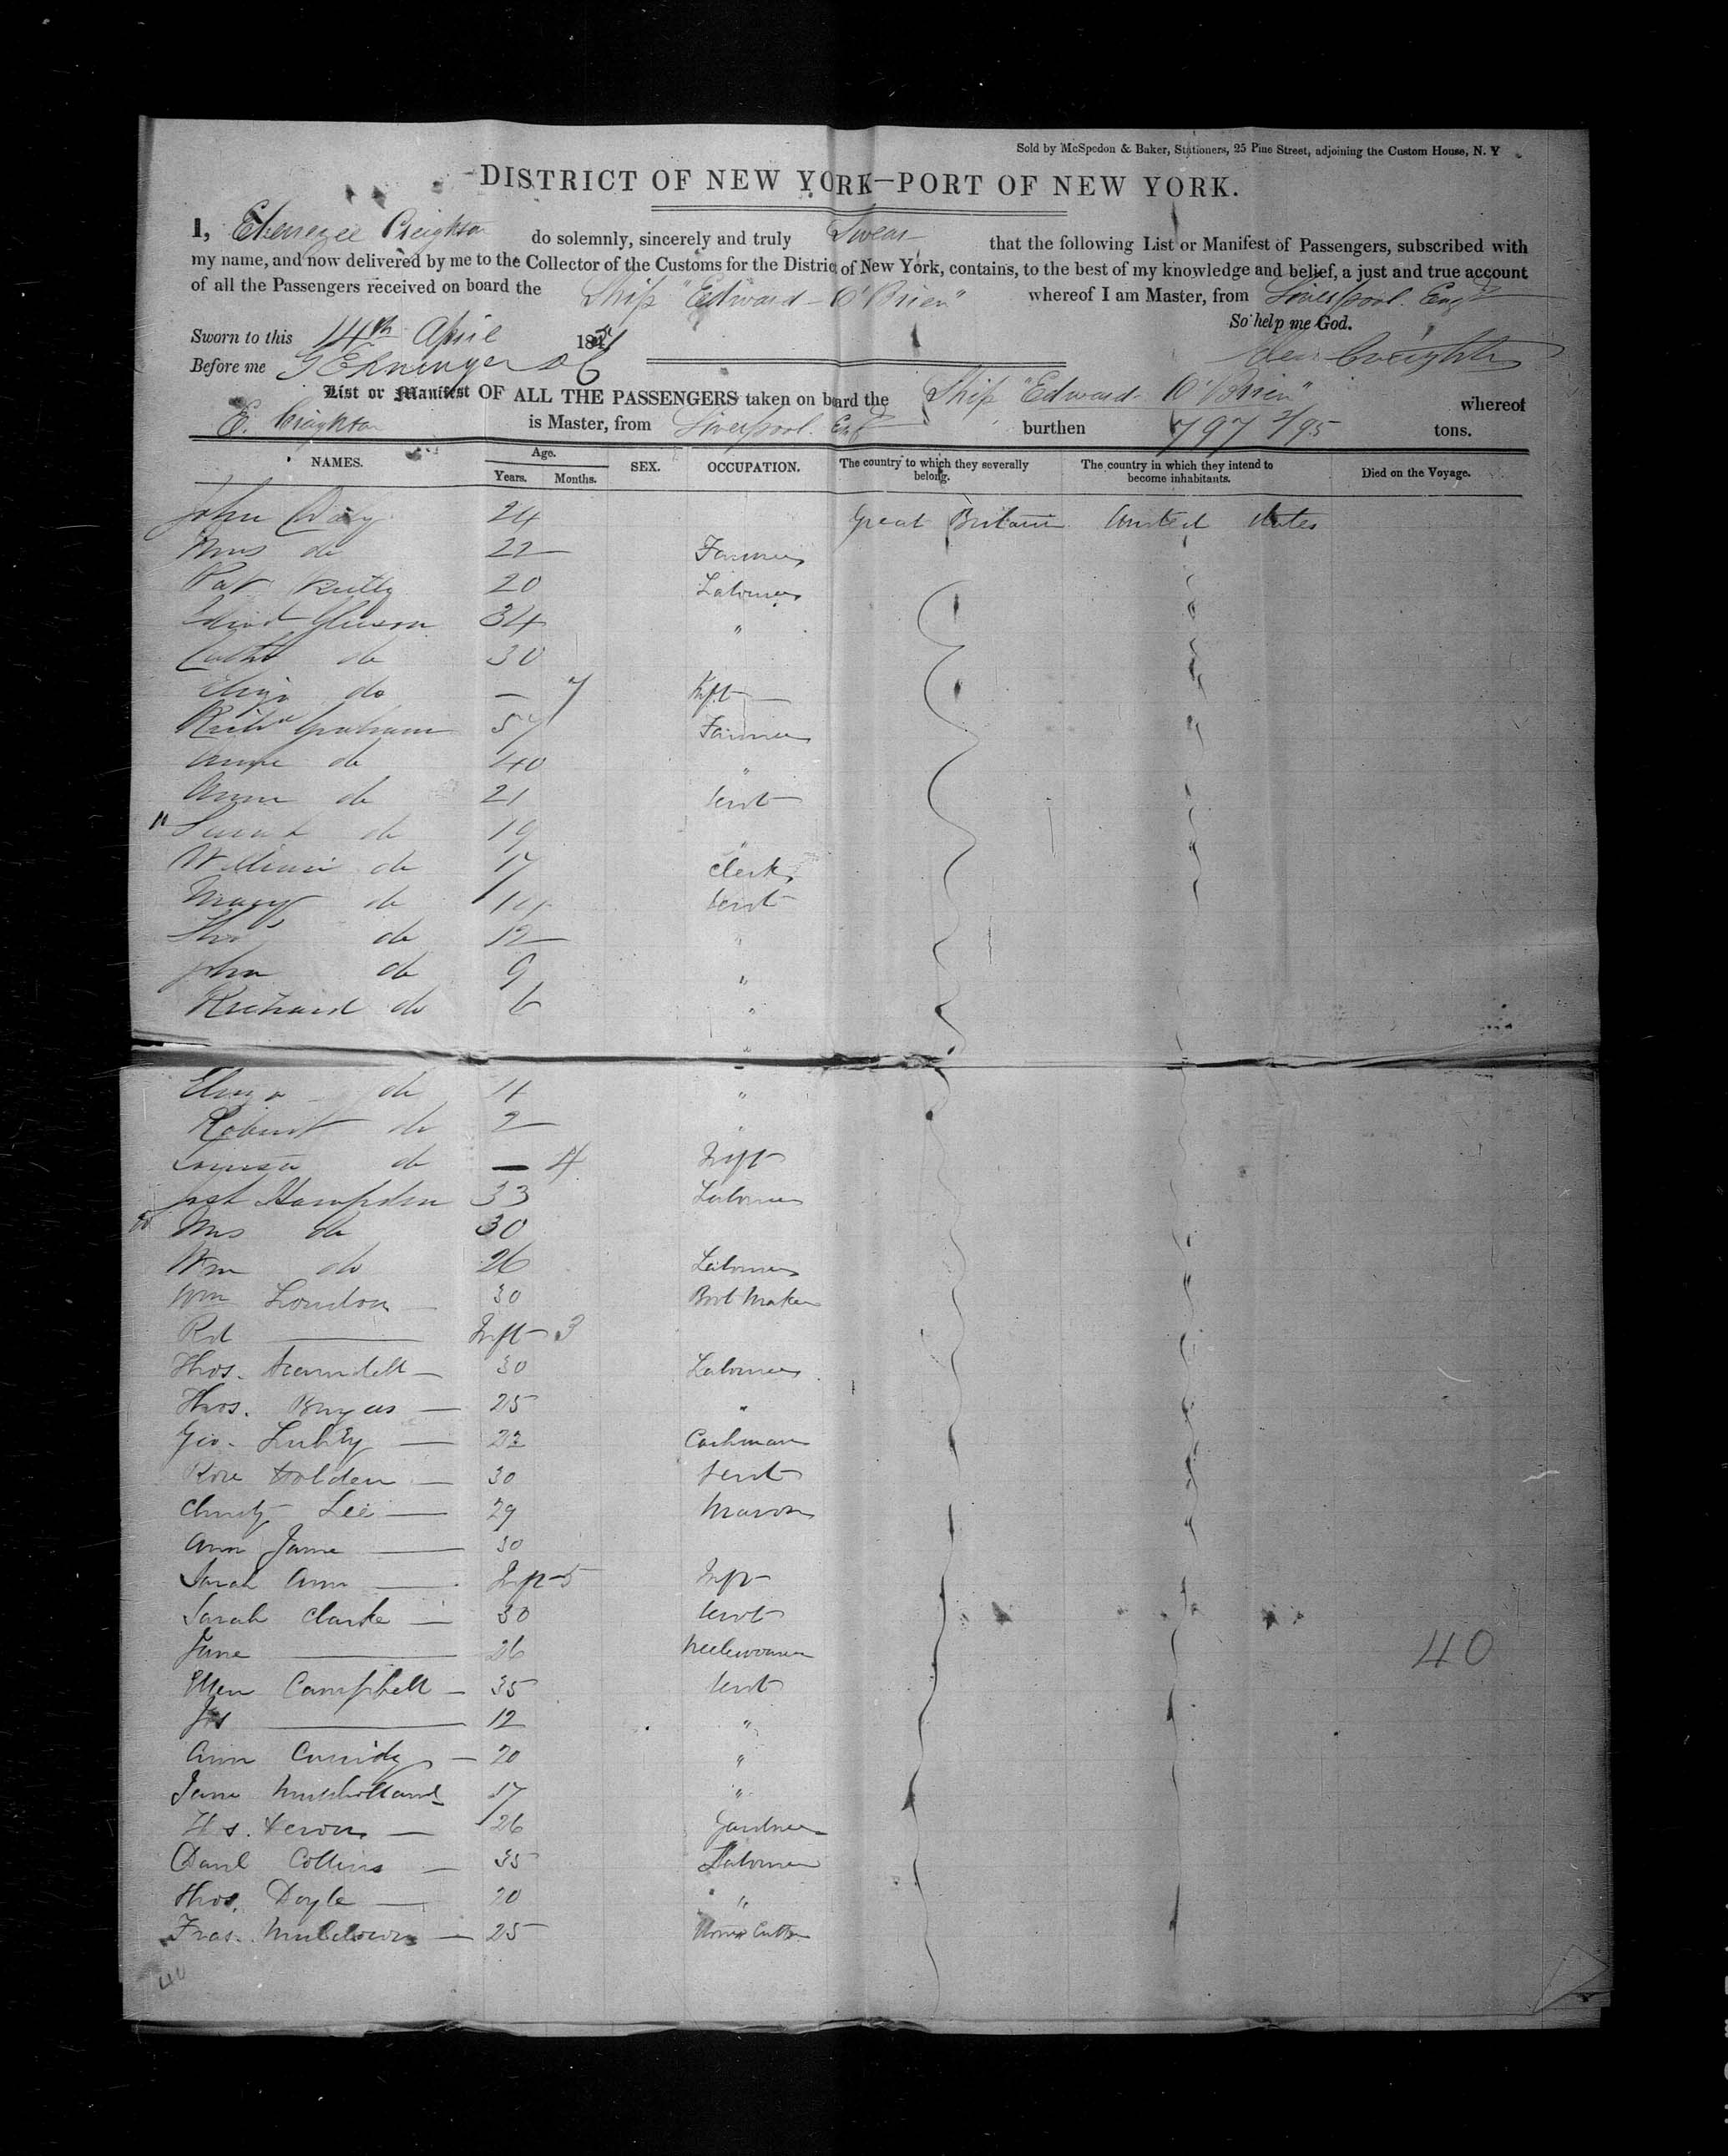 Sold by McSpedon & Baker, Stationers, 25 Pine Street, adjoining the Custom House, N. Y
DISTRICT OF NEW YORK—PORT OF NEW YORK.
I, Ebenezer Creighton do solemnly, sincerely and truly Swear that the following List or Manifest of Passengers, subscribed with
my name, and now delivered by me to the Collector of the Customs for the District of New York, contains, to the best of my knowledge and belief, a just and true account
of all the Passengers received on board the Ship "Edward O'Brien" whereof I am Master, from Liverpool. Engd
So help me God.
Sworn to this 14th April 1851
Before me Creighton
List or Manifest OF ALL THE PASSENGERS taken on board the Ship "Edward O'Brien" whereof
E. Creighton is Master, from Liverpool. Engd burthen 797 2/95 tons.
NAMES. Age. Years. Months. SEX. OCCUPATION. The country to which they severally belong. The country in which they intend to become inhabitants. Died on the Voyage.
John 24 Great Britain United States
Mrs do 22 Farmer
Pat Reilly 20 Laborer
Edwd Gleeson 34 "
Cathe do 30
Eliza do — 7 Inft
Richd Graham 57 Farmer
Anne do 40 "
Anne do 21 Servt
Sarah do 19 "
William do 17 Clerk
Mary do 14 Servt
Thos do 12 "
John do 9 "
Richard do 6 "
Eliza do 4 "
Robert do 2 "
Louisa do — 4 Inft
Hampden 33 Laborer
20 Mrs do 30
Wm do 26 Laborer
Wm London 30 Boot Maker
Rd — Inft 3
Thos. 30 Laborer
Thos. — 25 "
Geo. — 22 Coachman
Rose Holden — 30 Servt
Christy Lee — 29 Mason
Ann Jane — 30
Sarah Ann — Inft 5 Inft
Sarah Clarke — 30 Servt
Jane — 26
40
Ellen Campbell — 35 Servt
Jas — 12 "
Ann Cassidy — 20 "
Jane Mulholland 17 "
Heron — 26 Gardner
Danl Collins — 35 Laborer
Thos. Doyle — 20 "
Fras. Muldoon — 25 Cutter
40